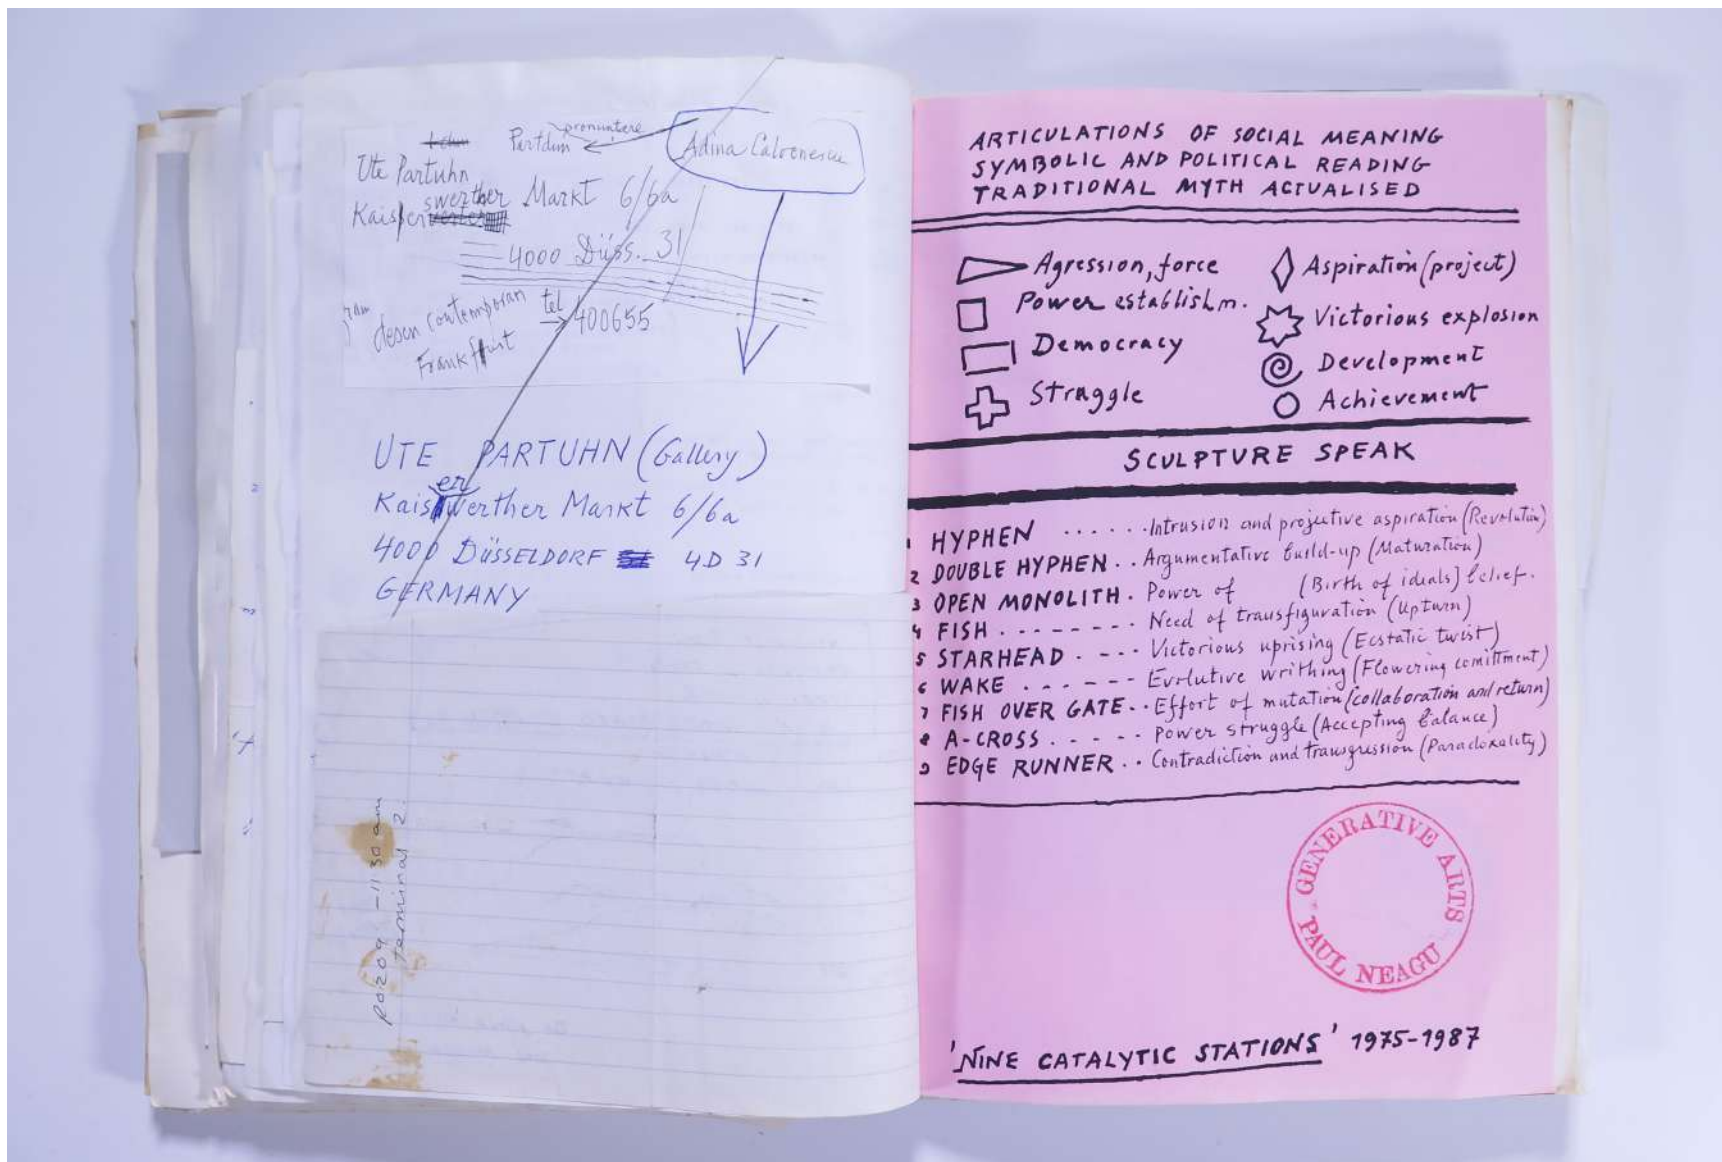 Partdun pronuntere
Adina Caloenescu
Ute Partuhn
swerther Markt 6/6a
Kaiser
4000 Düss. 31
desen contemporan tel 400655
Frankfurt
UTE PARTUHN (Gallery)
Kaiserwerther Markt 6/6a
4000 DÜSSELDORF 4D 31
GERMANY
R0209 - 11 30 am
terminal 2.
ARTICULATIONS OF SOCIAL MEANING
SYMBOLIC AND POLITICAL READING
TRADITIONAL MYTH ACTUALISED
Agression, force
Power establishm.
Democracy
Struggle
Aspiration (project)
Victorious explosion
Development
Achievement
SCULPTURE SPEAK
1 HYPHEN ...... Intrusion and projective aspiration (Revolution)
2 DOUBLE HYPHEN .. Argumentative build-up (Maturation)
3 OPEN MONOLITH . Power of (Birth of ideals) belief.
4 FISH . - - - - - - . Need of transfiguration (Upturn)
5 STARHEAD . - - - Victorious uprising (Ecstatic twist)
6 WAKE . . - . - - Evolutive writhing (Flowering comittment)
7 FISH OVER GATE . . Effort of mutation (collaboration and return)
8 A-CROSS . . - . - - Power struggle (Accepting balance)
9 EDGE RUNNER . . Contradiction and transgression (Paradoxality)
GENERATIVE ARTS
PAUL NEAGU
'NINE CATALYTIC STATIONS' 1975-1987